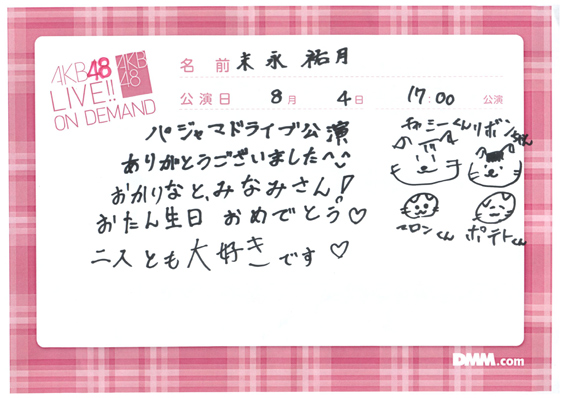 AKB48
LIVE!!
ON DEMAND
AKB
48
名 前 末永 祐月
公演日 8月 4日 17:00 公演
パジャマドライブ公演
ありがとうございました^^
おかりなと、みなみさん!
おたん生日 おめでとう♡
二人とも大好きです♡
チャミーくん リボンちゃん
マロンくん ポテトくん
DMM.com